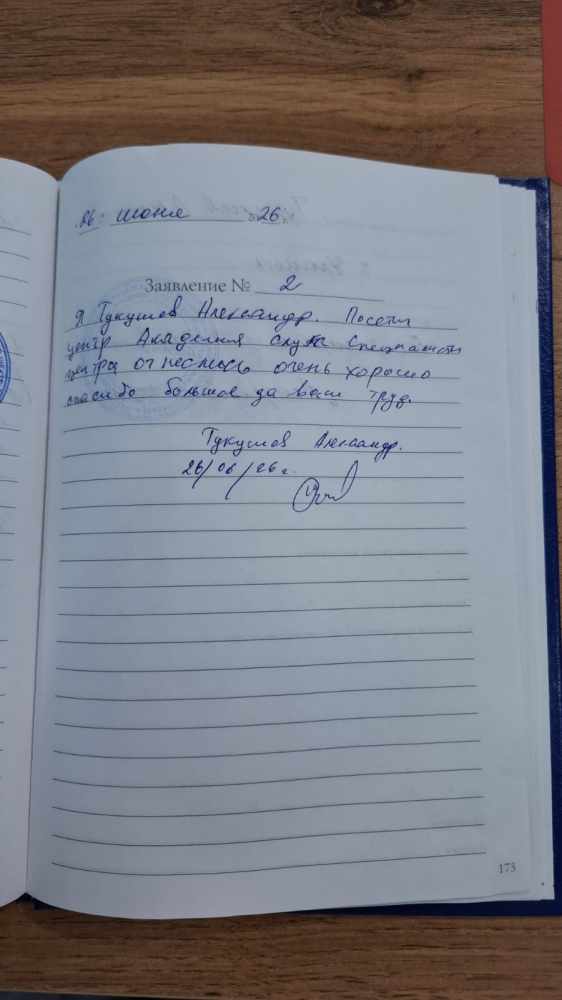 26. июня 26
Заявление № 2
Я Тукушев Александр. Посетил
центр Академия слуха Специалисты
центра отнеслись очень хорошо
спасибо большое за ваш труд.
Тукушев Александр.
26/06/26 г.
173